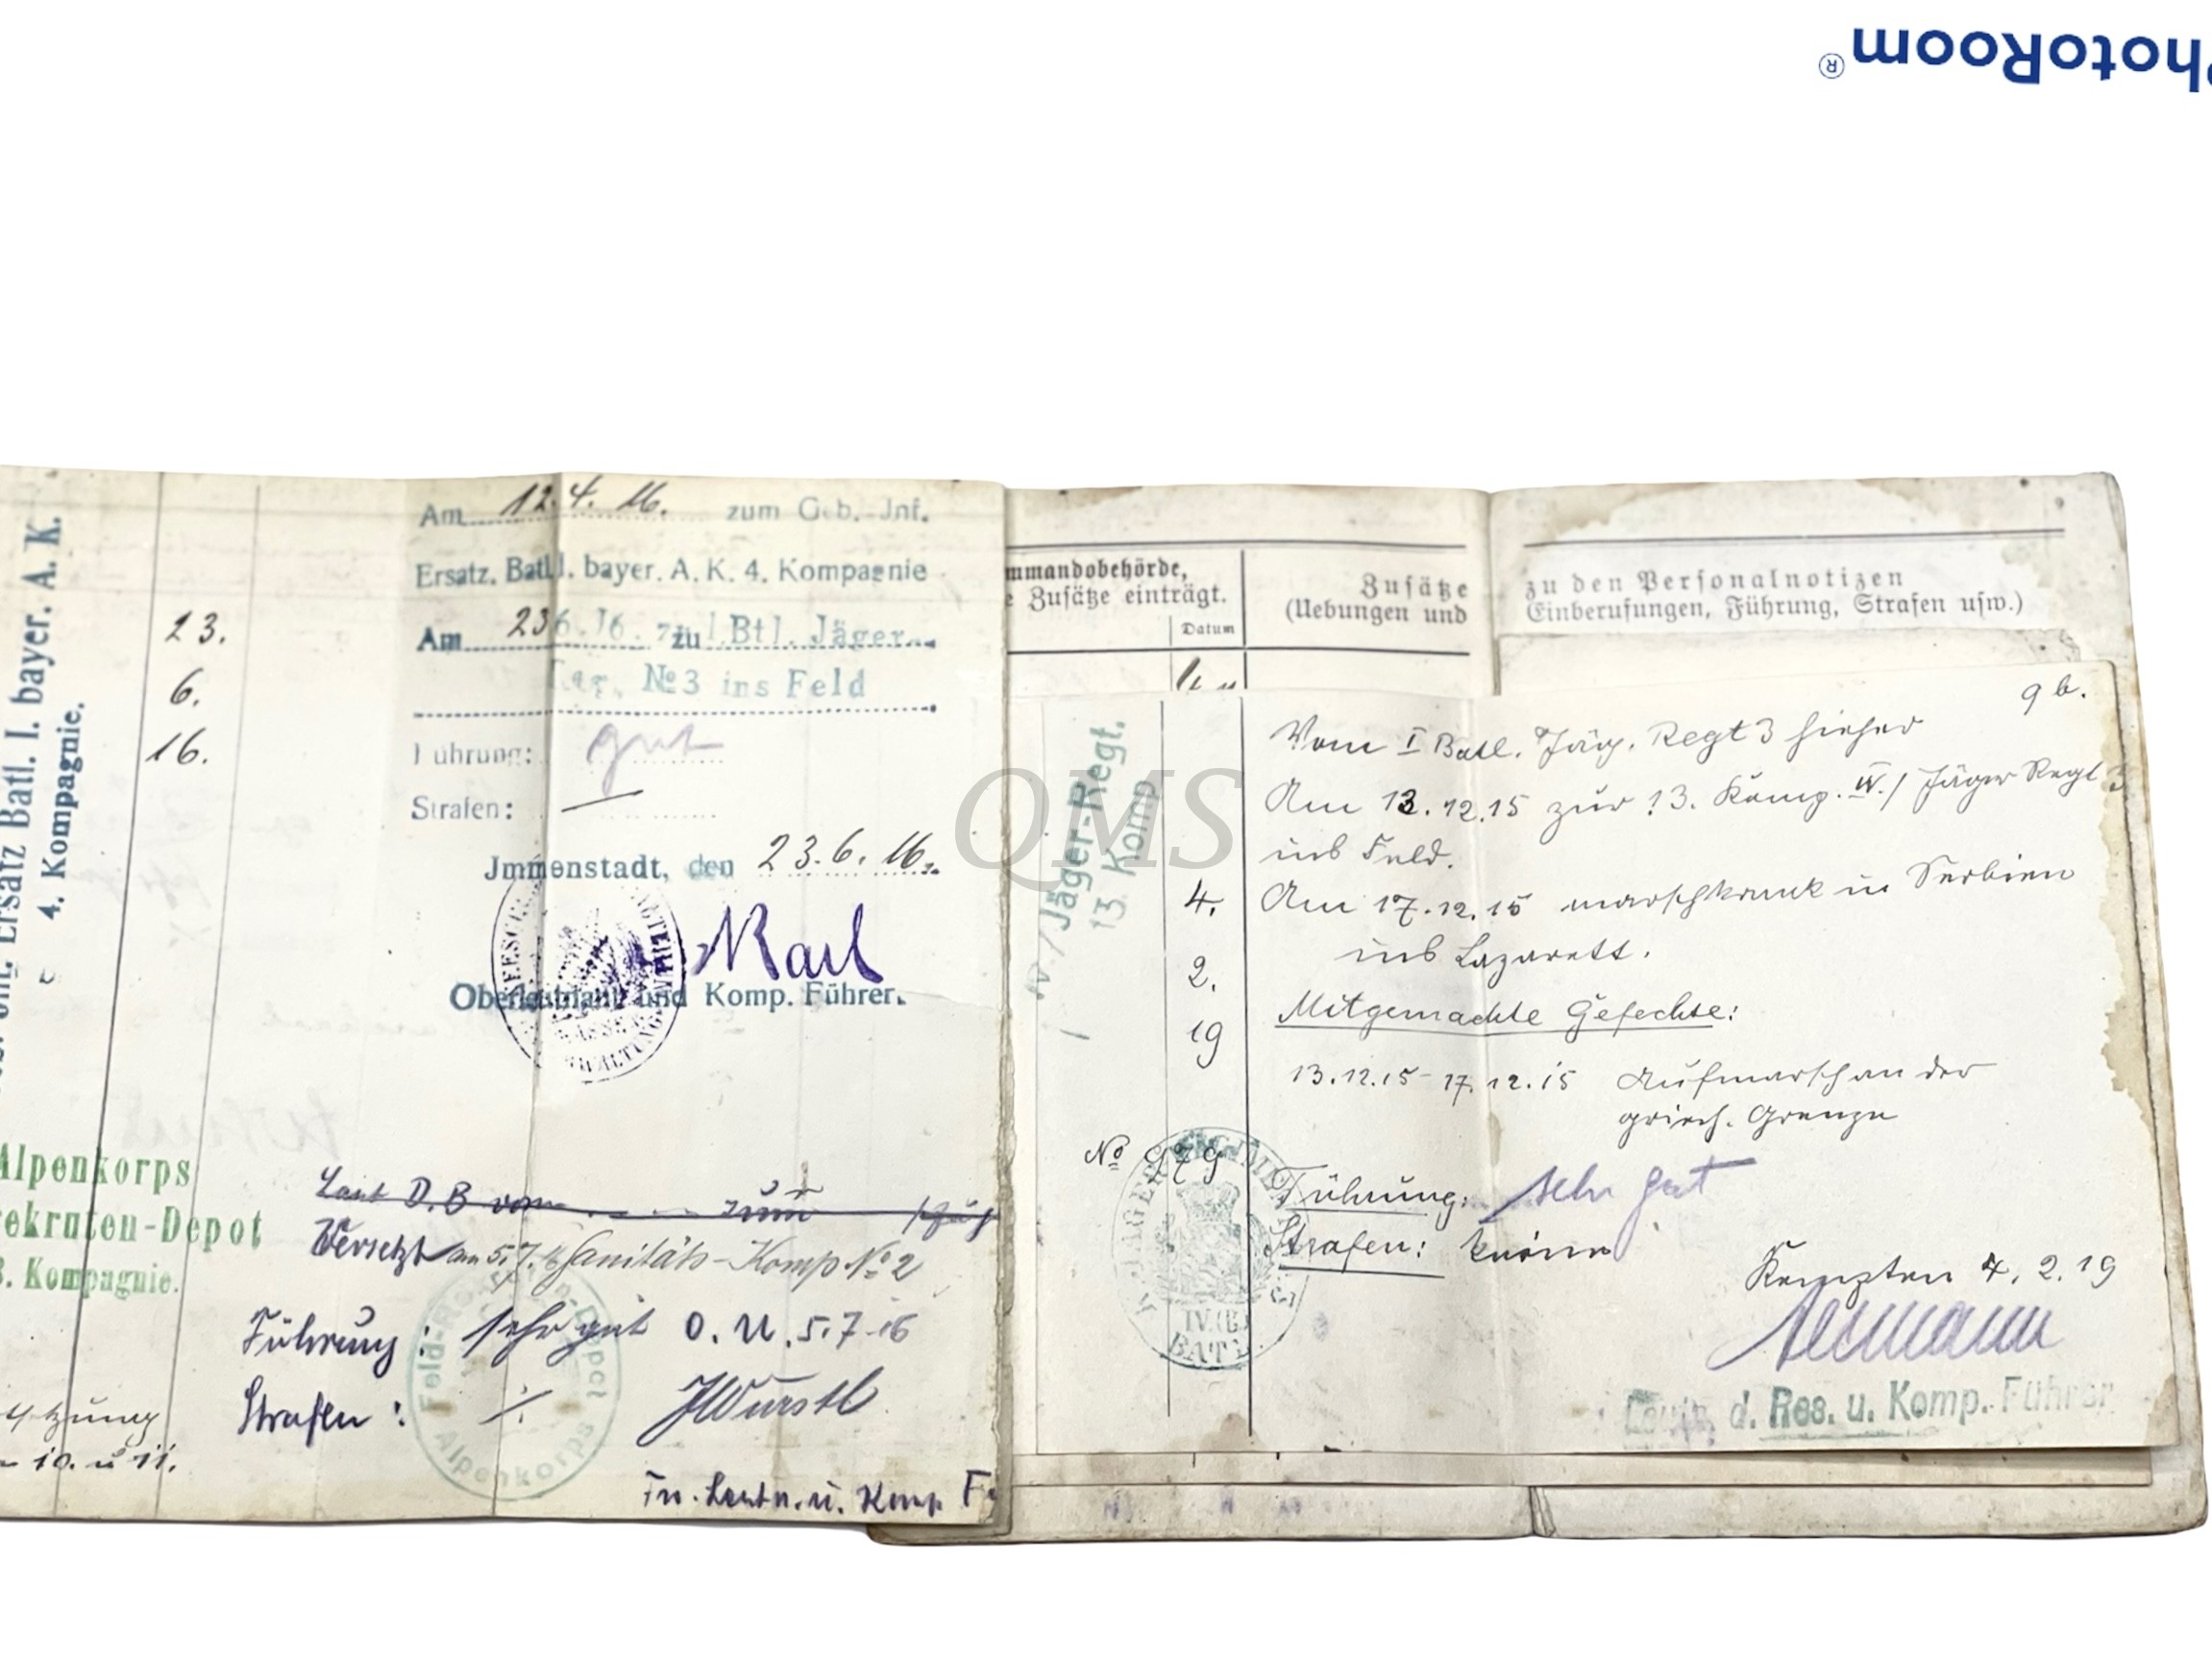 PhotoRoom®
Am 12.4.16. zum Geb.-Jnf.
Ersatz. Batl. I. bayer. A. K. 4. Kompagnie
Am 23 6.16. zu I. Btl. Jäger
Reg. № 3 ins Feld
Führung: gut
Strafen: —
Jmmenstadt, den 23.6.16.
Karl
Oberleutnant und Komp. Führer.
Ersatz Batl. I. bayer. A. K.
4. Kompagnie.
23.
6.
16.
Alpenkorps
ekruten-Depot
3. Kompagnie.
Laut D. B vom zum
Versetzt am 5.7.16 Sanitäts-Komp № 2
Führung: sehr gut O. U. 5.7.16
Strafen: ·/·
Wurstl
Leutn. u. Komp F
10. u 11.
Feld-Rekruten-Depot
Alpenkorps
mmandobehörde,
e Zusätze einträgt.
Datum
Zusätze
(Uebungen und
zu den Personalnotizen
Einberufungen, Führung, Strafen usw.)
9 b.
IV / Jäger-Regt.
13. Komp
4.
2.
19
Vom I Batl. Jäg. Regt 3 hieher
Am 13.12.15 zur 13. Komp. IV. / Jäger Regt 3
ins Feld.
Am 17.12.15 marschkrank in Serbien
ins Lazarett.
Mitgemachte Gefechte:
13.12.15 - 17.12.15 Aufmarsch an der
griech. Grenze
№ 979
Führung: sehr gut
Strafen: keine
Kempten 4.2.19
Leutn. d. Res. u. Komp.-Führer
IV. (B.)
BATL.
QMS